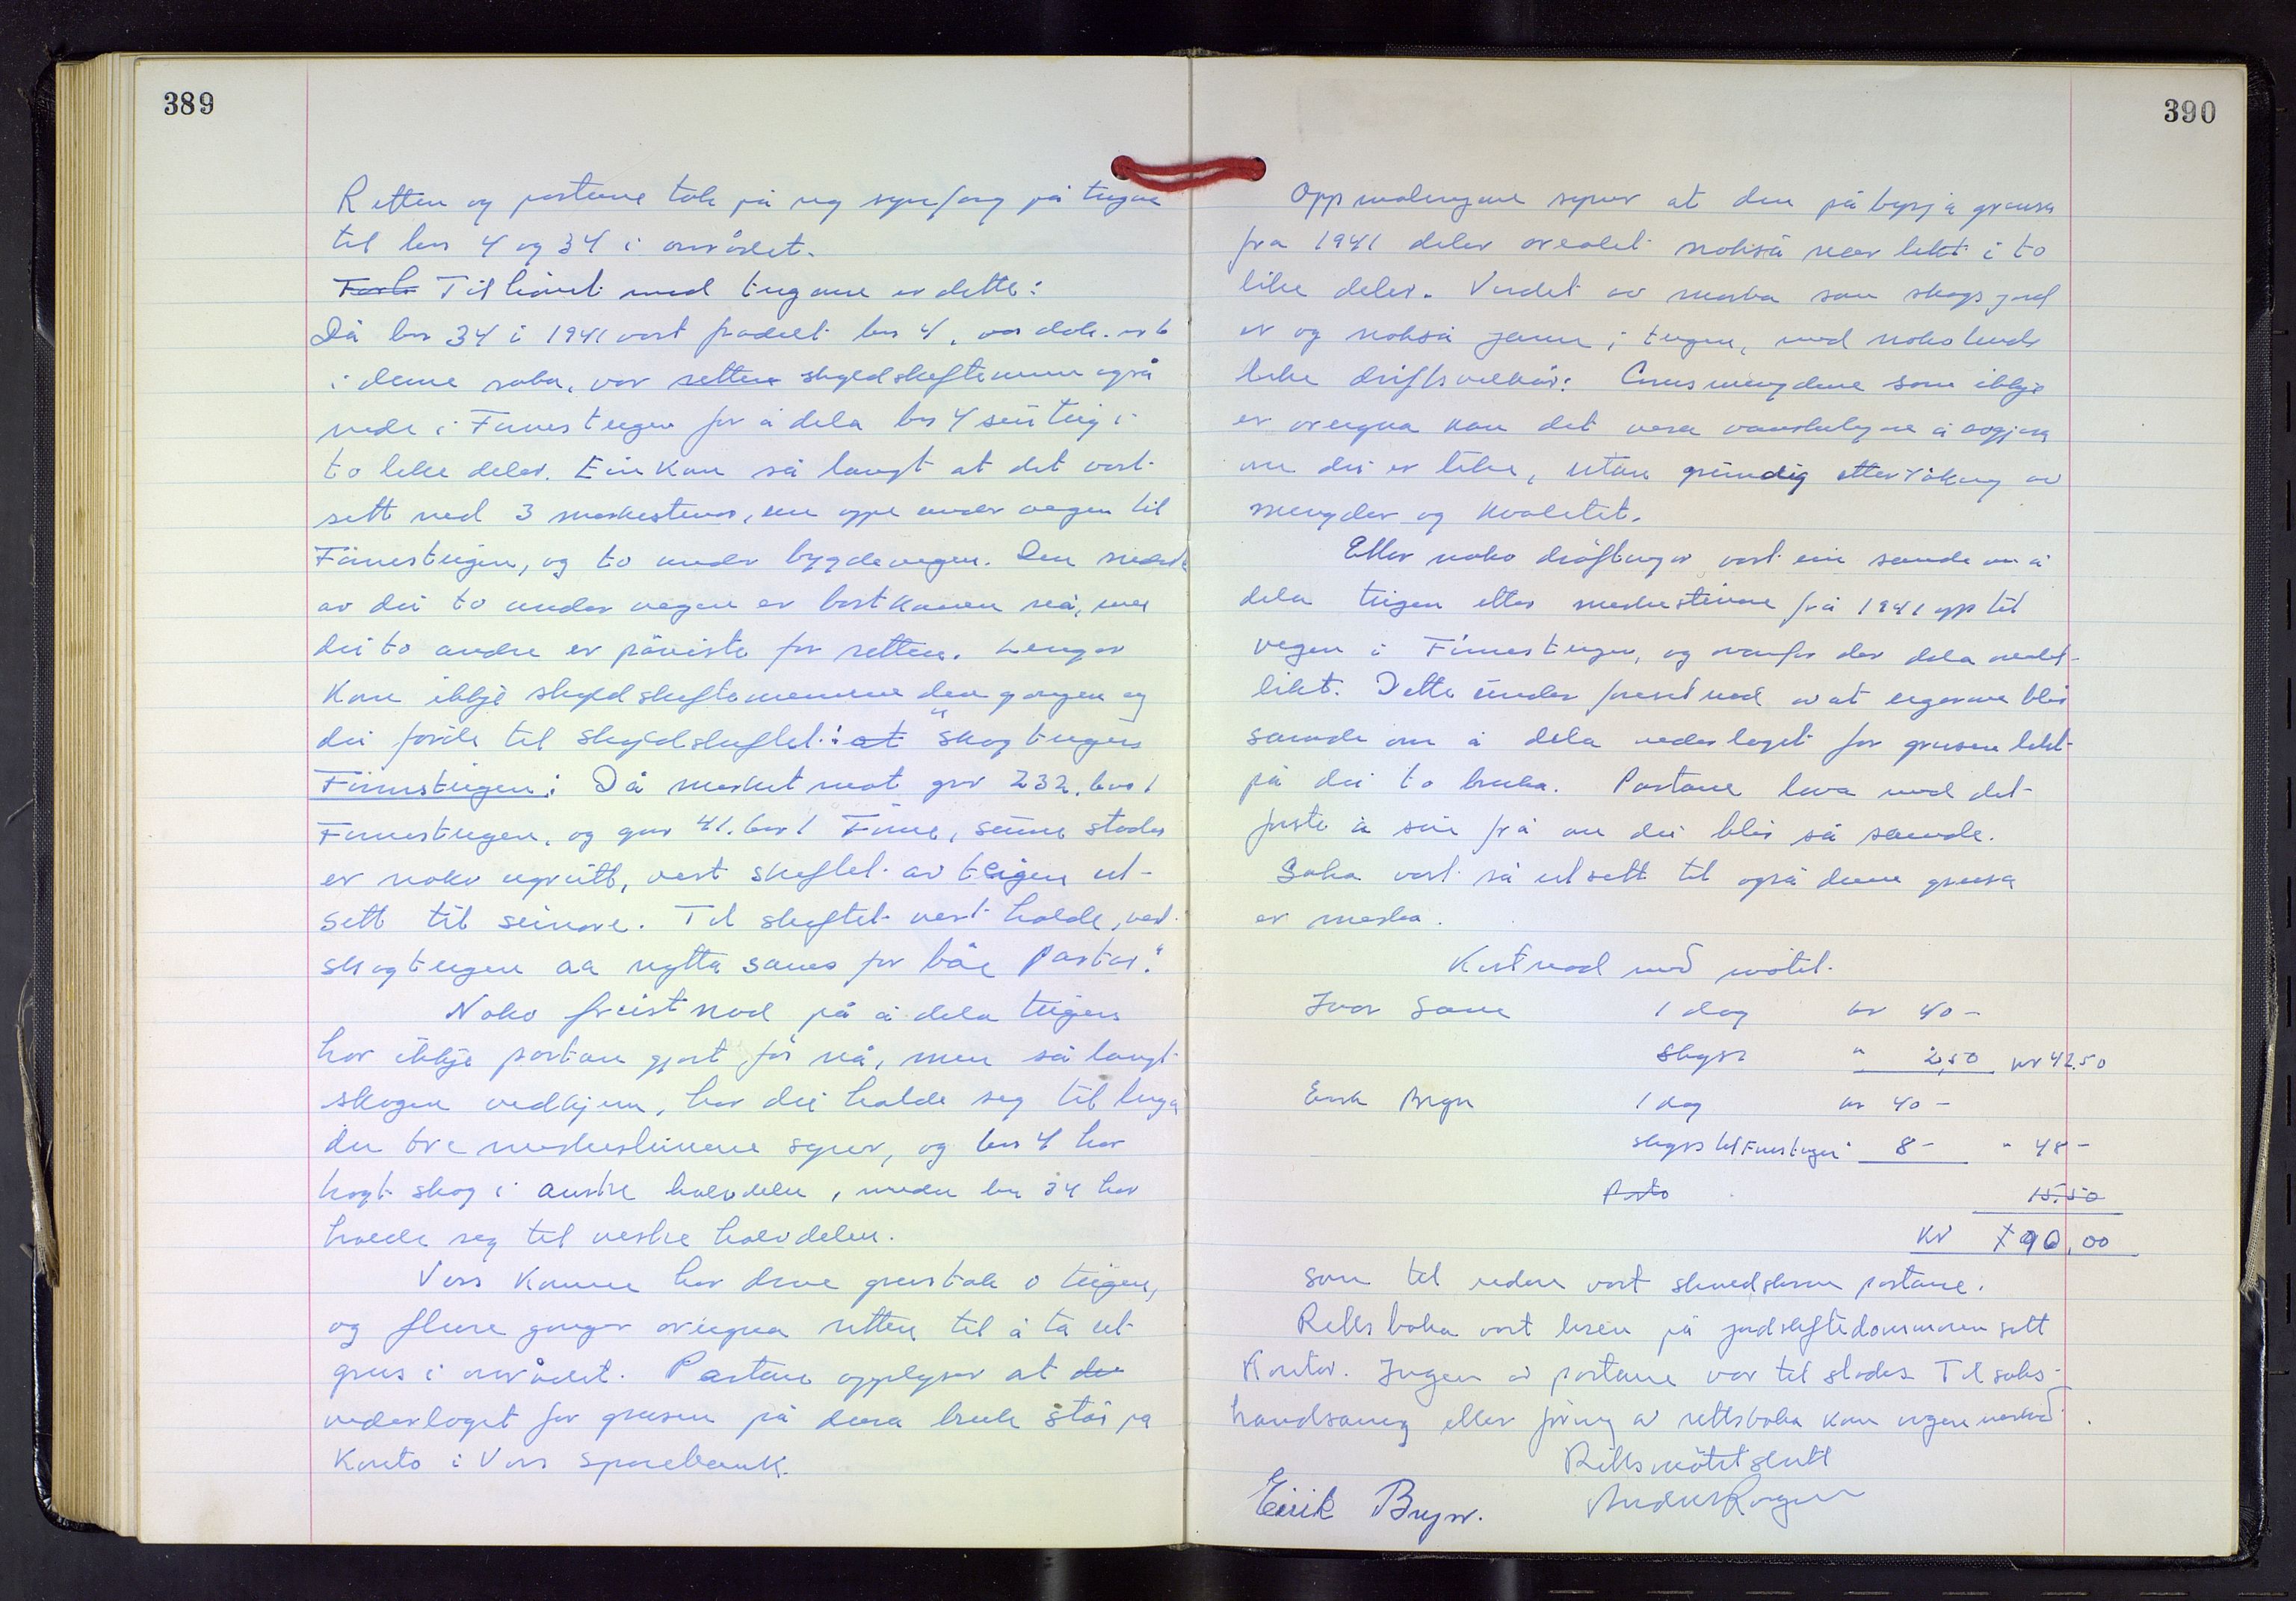 389
Retten og partane tok på seg synfaring på teigane
til bnr 4 og 34 i området.
Tilhøvet med teigane er dette:
Då bnr 34 i 1941 vart frådelt bnr 4, var dok. nr 6
i denne saka, var retten skyldskiftemenn også
nede i Finnesteigen for å dela bnr 4 sin teig i
to like deler. Ein kom så langt at det vart
sett ned 3 merkesteinar, ein oppe under vegen til
Finnesteigen, og to under bygdevegen. Den nedste
av dei to under vegen er bortkomen nå, men
dei to andre er påviste for retten. Lenger
kom ikkje skyldskiftemennene den gongen og
dei førde til skyldskiftet: at "skogteigen
Finnsteigen: Då merket mot gnr 232. bnr 1
Finnesteigen, og gnr 41. bnr 1 Finne, sume stader
er noko ugreitt, vert skiftet av teigen ut-
sett til seinare. Til skiftet vert halde, vert
skogteigen aa nytta sams for båe partar."
Noko freistnad på å dela teigen
har ikkje partane gjort før nå, men så langt
skogen vedkjem, har dei halde seg til lina
dei tre merkesteinane syner, og bnr 4 har
hogt skog i austre halvdelen, medan bnr 34 har
halde seg til vestre halvdelen.
Voss Komune har drive grustak i teigen,
og fleire gonger oreigna retten til å ta ut
grus i området. Partane opplyser at dei
vederlaget for grusen på deira bruk står på
konto i Voss Sparebank.
390
Oppmålingane syner at den påbyrja grensa
fra 1941 deler arealet nokså nær likt i to
like deler. Verdet av marka som skogsjord
er og nokså jamn i teigen, med nokolunde
like driftsvilkår. Grusmengdene som ikkje
er oreigna kan det vera vanskelegare å avgjera
om dei er like, utan grundig etterrøking av
mengder og kvalitet.
Etter noko drøftingar vart ein samde om å
dela teigen etter merkesteinane frå 1941 opp til
vegen i Finnesteigen, og ovanfor der dela arealet
likt. Dette under føresetnad av at eigarane blir
samde om å dela vederlaget for grusen likt
på dei to bruka. Partane lova med det
første å seie frå om dei blir så samde.
Saka vart så utsett til også denne grensa
er merka.
Kostnad med møtet.
Ivar Save 1 dag kr 40 -
Skyss " 2,50 kr 42.50
Eirik Bryn 1 dag kr 40 -
skyss til Finnesteigen " 8 - " 48 -
Porto 15.50
Kr 90,00
som til vedere vart skuldskreve partane.
Rettsboka vart lesen på jordskiftedommaren sitt
kontor. Ingen av partane var til stades. Til saks-
handsaming eller føring av rettsboka kom ingen merknad.
Rettsmøtet slutt
Eirik Bryn.